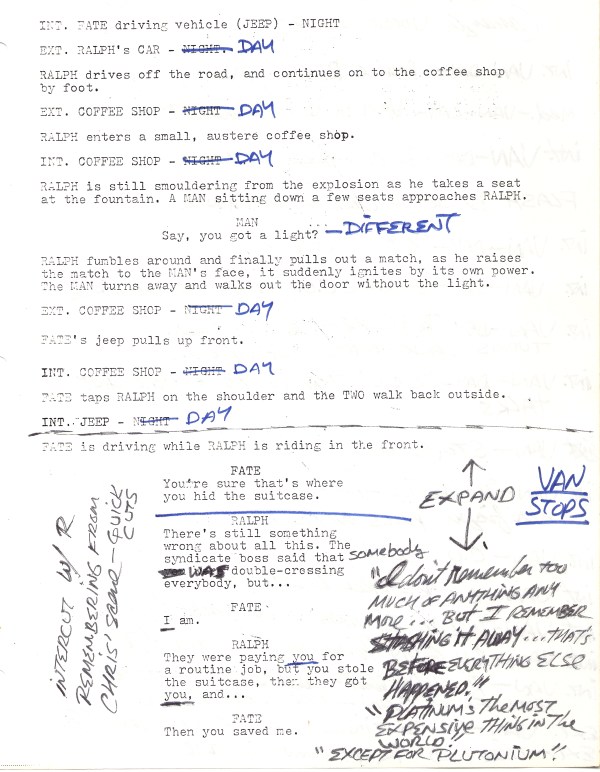 INT. FATE driving vehicle (JEEP) - NIGHT
EXT. RALPH's CAR - NIGHT. DAY
RALPH drives off the road, and continues on to the coffee shop
by foot.
EXT. COFFEE SHOP - NIGHT DAY
RALPH enters a small, austere coffee shop.
INT. COFFEE SHOP - NIGHT DAY
RALPH is still smouldering from the explosion as he takes a seat
at the fountain. A MAN sitting down a few seats approaches RALPH.
MAN
Say, you got a light? — DIFFERENT
RALPH fumbles around and finally pulls out a match, as he raises
the match to the MAN's face, it suddenly ignites by its own power.
The MAN turns away and walks out the door without the light.
EXT. COFFEE SHOP - NIGHT DAY
FATE's jeep pulls up front.
INT. COFFEE SHOP - NIGHT DAY
FATE taps RALPH on the shoulder and the TWO walk back outside.
INT. JEEP - NIGHT DAY
FATE is driving while RALPH is riding in the front.
FATE
You're sure that's where
you hid the suitcase.
RALPH
There's still something
wrong about all this. The
syndicate boss said that somebody
WAS double-crossing
everybody, but...
FATE
I am.
RALPH
They were paying you for
a routine job, but you stole
the suitcase, then they got
you, and...
FATE
Then you saved me.
INTERCUT W/ R
REMEMBERING FROM
CHRIS' SCENE — QUICK
CUTS
EXPAND
VAN
STOPS
"I don't Remember TOO
MUCH OF ANYTHING ANY
MORE... BUT I REMEMBER
STASHING IT AWAY... THAT'S
BEFORE EVERYTHING ELSE
HAPPENED."
"PLATINUM'S THE MOST
EXPENSIVE THING IN THE
WORLD.
"EXCEPT FOR PLUTONIUM".